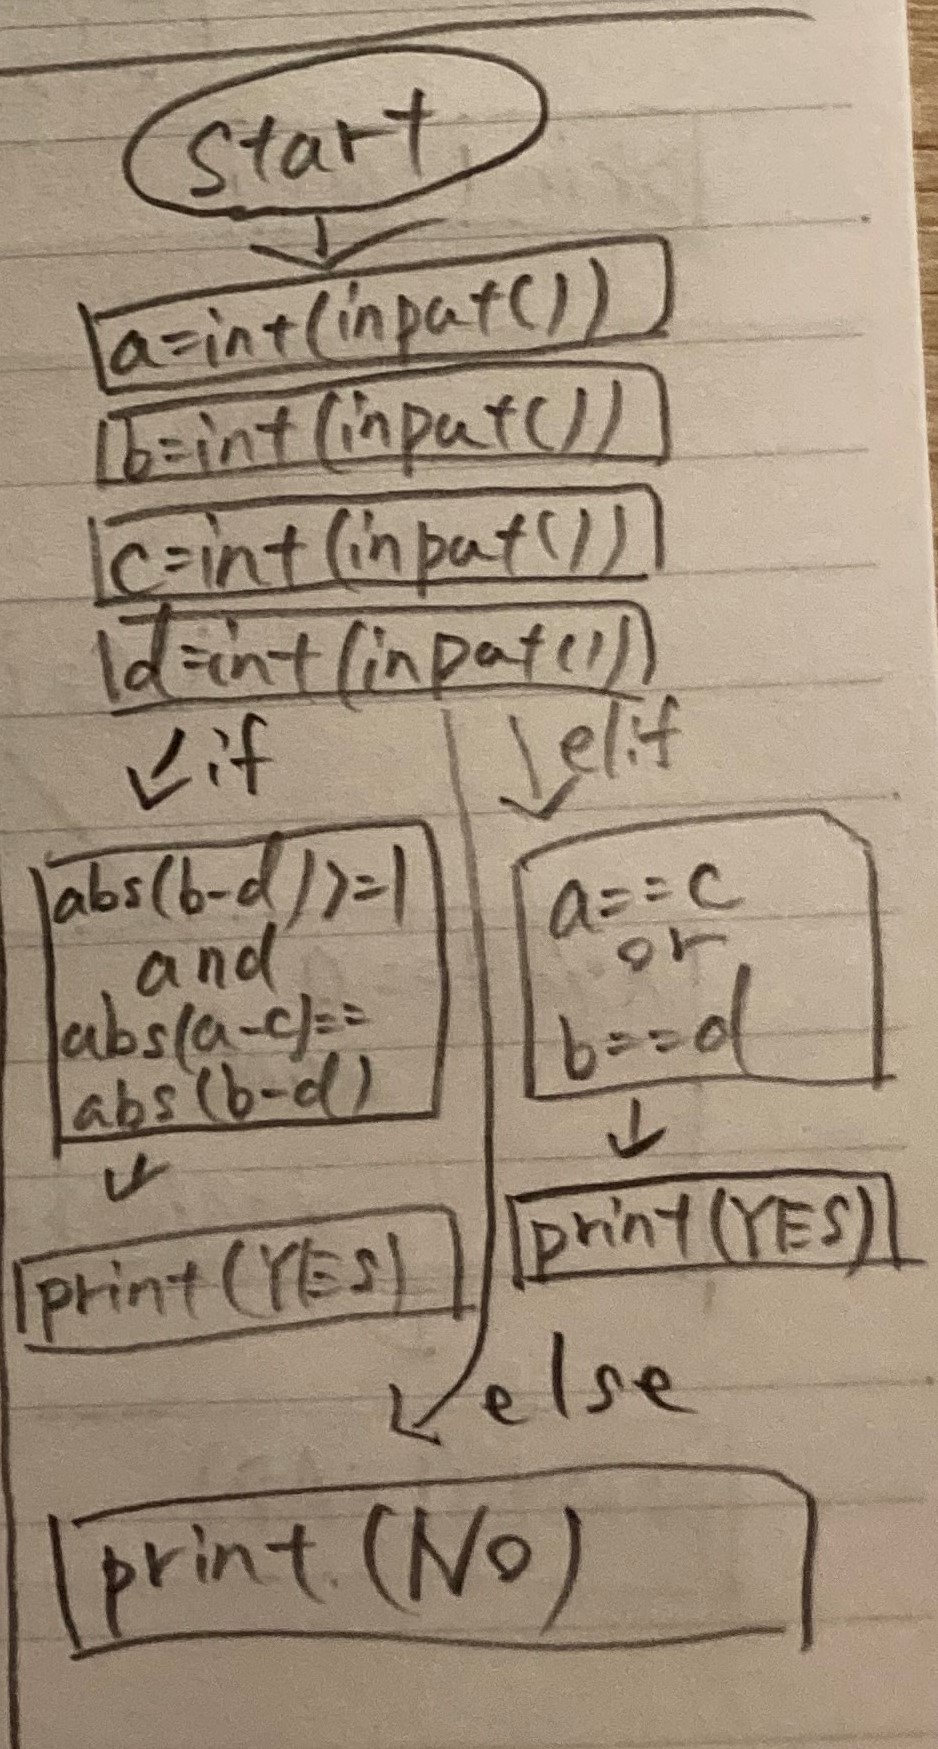 start
a=int(input())
b=int(input())
c=int(input())
d=int(input())
if
elif
abs(b-d))>=1
and
abs(a-c)==
abs(b-d)
print(YES)
a==c
or
b==d
print(YES)
else
print(No)